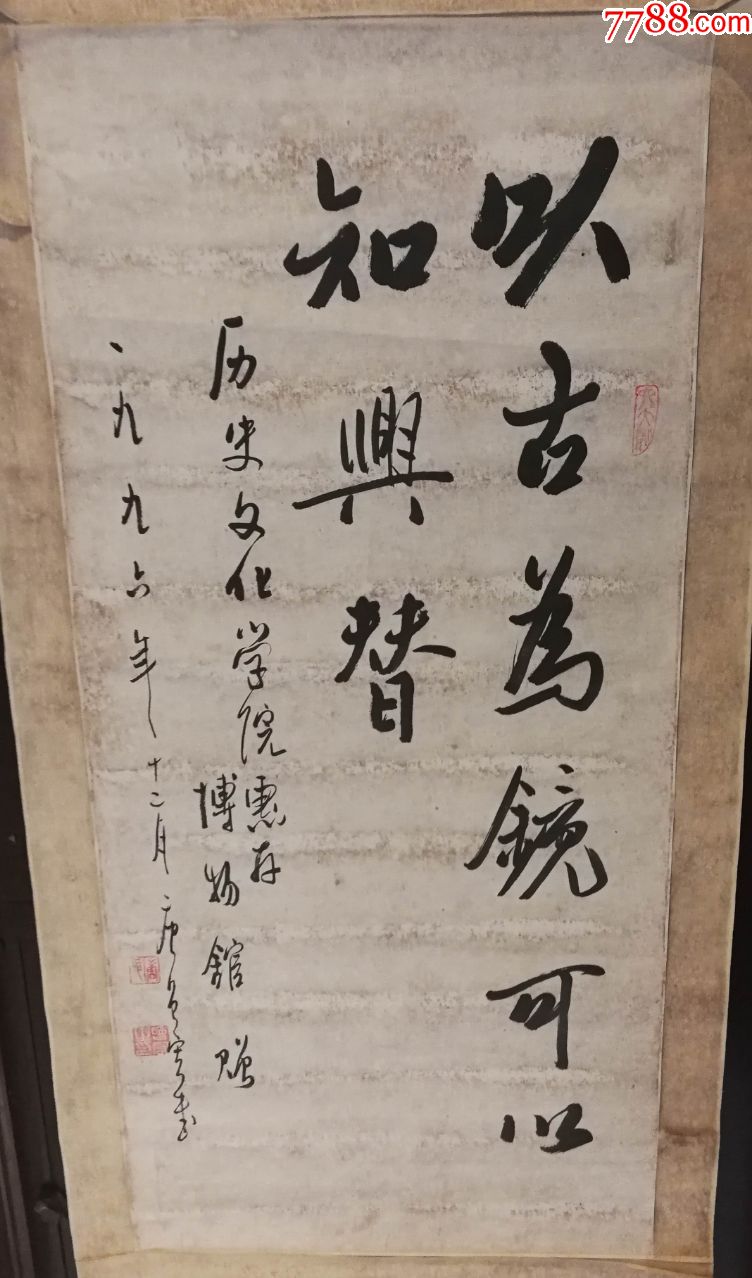 7788.com
以古為鏡可以
知興替
历史文化学院惠存
博物館赠
一九九六年十二月唐昌宪书